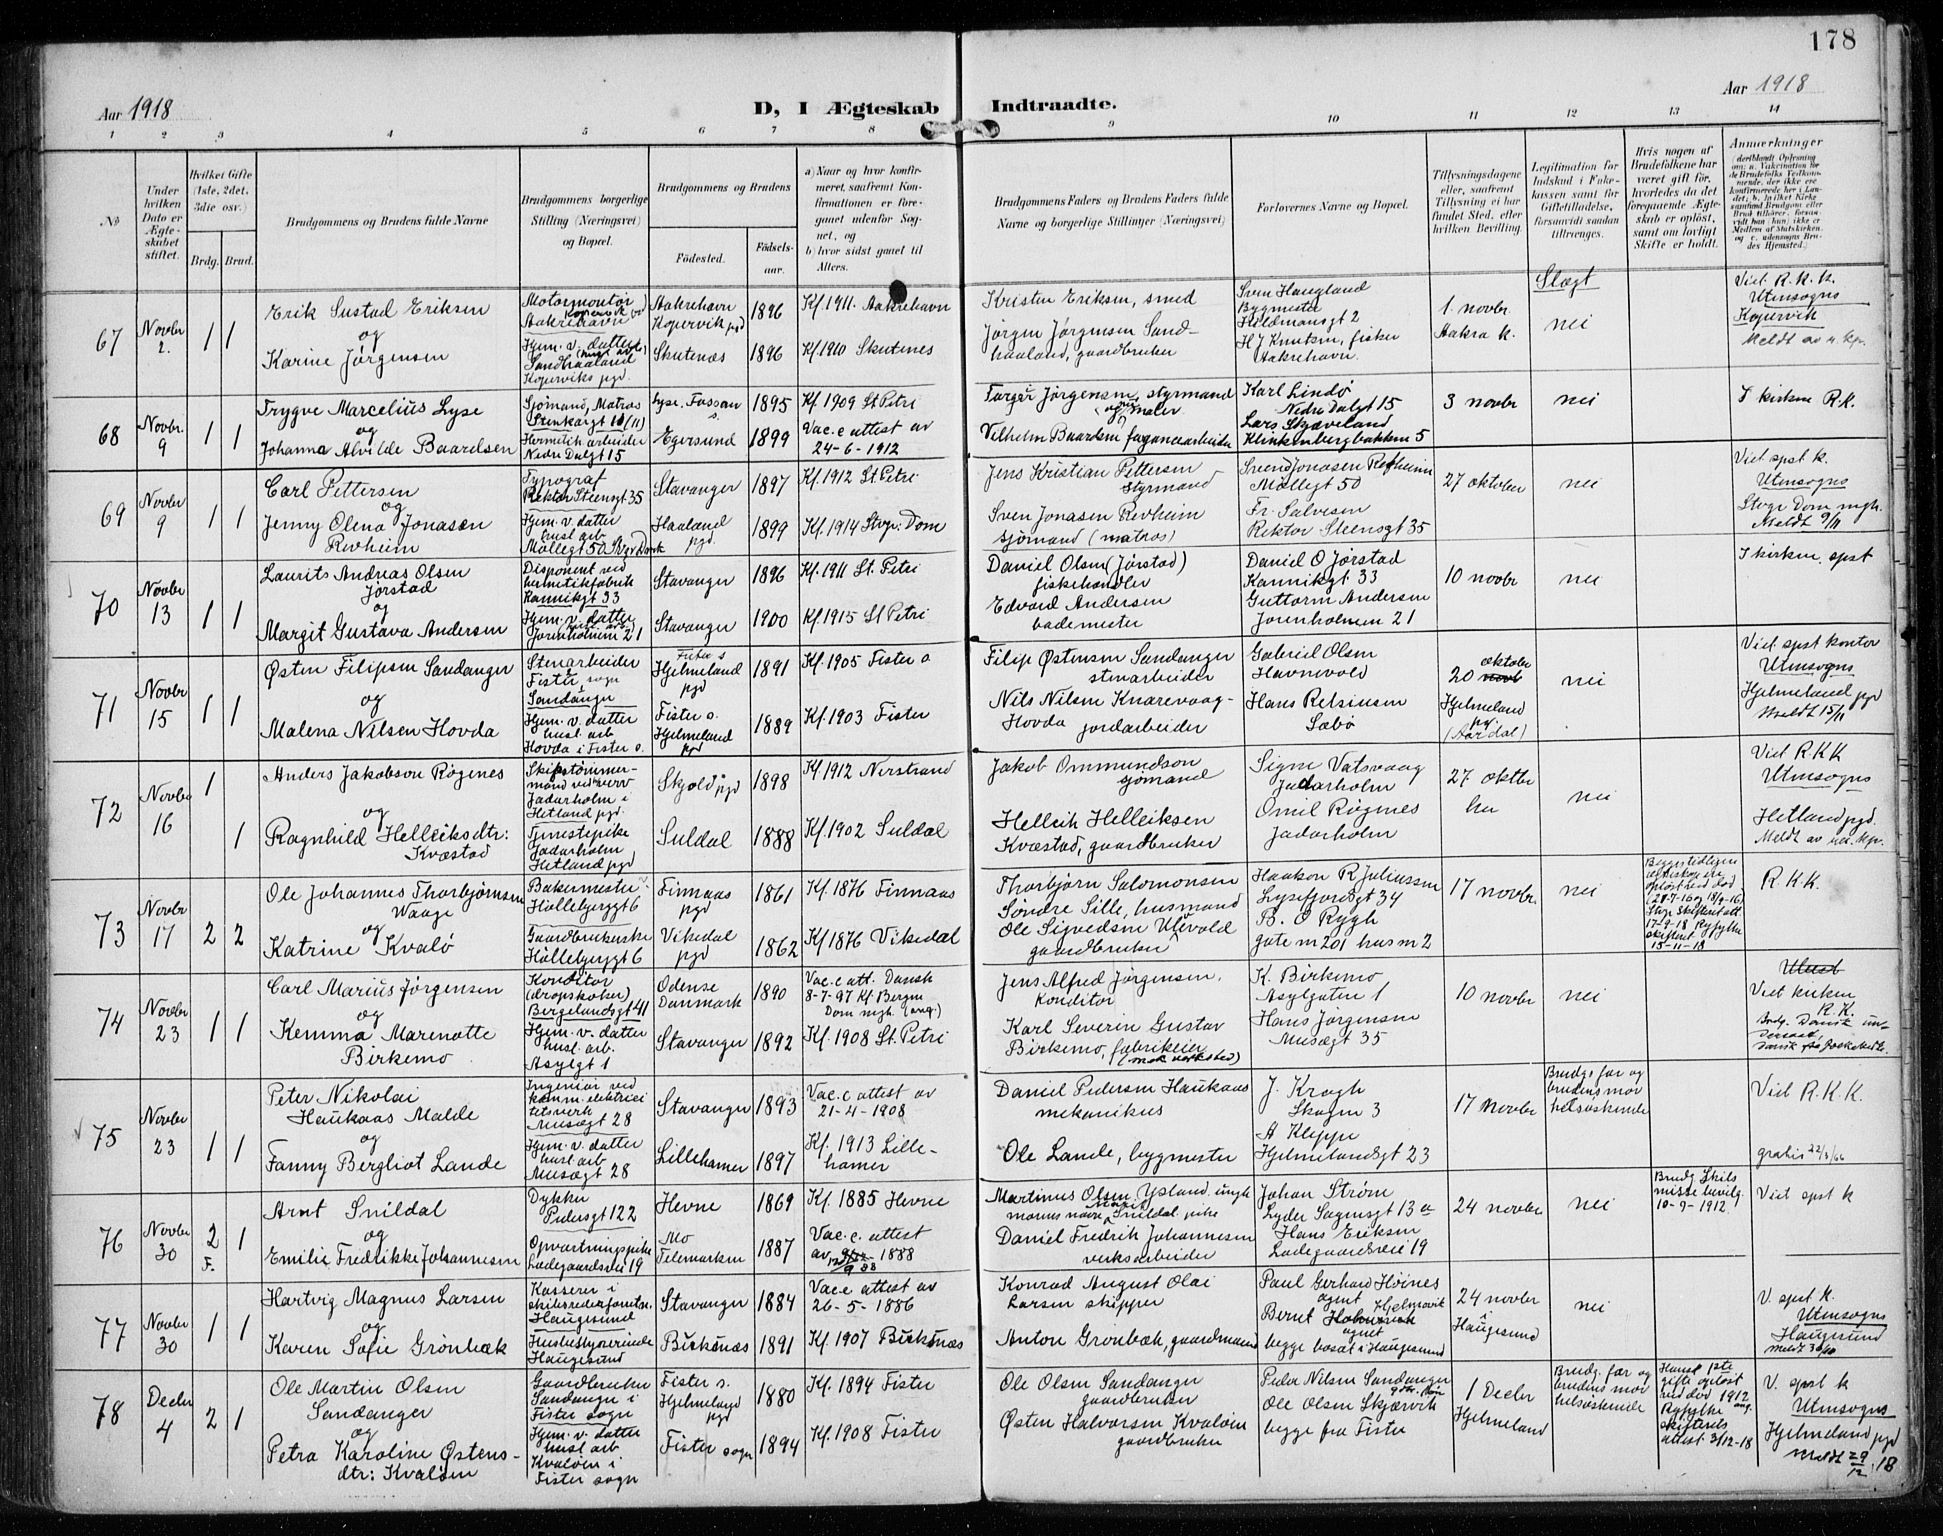 178
Aar 1918
D, I Ægteskab Indtraadte.
Aar 1918
1 2 3 4 5 6 7 8 9 10 11 12 13 14
No
Under hvilken Dato er Ægteskabet stiftet.
Hvilket Gifte (1ste, 2det, 3die osv.)
Brdg. Brud.
Brudgommens og Brudens fulde Navne
Brudgommens borgerlige Stilling (Næringsvei) og Bopæl.
Brudgommens og Brudens
Födested.
Födselsaar.
a) Naar og hvor konfirmeret, saafremt Konfirmationen er foregaaet udenfor Sognet, og
b) hvor sidst gaaet til Alters.
Brudgommens Faders og Brudens Faders fulde Navne og borgerlige Stillinger (Næringsvei)
Forlovernes Navne og Bopæl.
Tillysningsdagene eller, saafremt Tillysning ei har fundet Sted, efter hvilken Bevilling.
Legitimation for Indskud i Enkekassen samt for Giftetilladelse, forsaavidt saadan tiltrænges.
Hvis nogen af Brudefolkene har været gift för, hvorledes da det foregaaende Ægteskab er oplöst, samt om lovligt Skifte er holdt.
Anmærkninger
Slægt
67
Novbr 2.
1 1
Erik Sustad Eriksen
og
Karine Jørgensen
Motormontör
Aakrehavn
Hjem. v. datter
Sandhaaland
Koperviks pgd.
Aakrehavn
Kopervik pgd
1896
Kf. 1911. Aakrehavn
Skutenæs
1896
Kf. 1910 Skutenes
Kristen Eriksen, smed
Jørgen Jørgensen Sandhaaland, gaardbruker
Sven Haugland
Bygmester
Hildmansgt 2
H J Knutsen, fisker
Aakrehavn.
1 novbr.
Aakra k.
nei
Viet R. K. K.
Utensogns
Kopervik
68
Novbr. 9
1 1
Trygve Marcelius Lyse
og
Johanna Alvilde Baardsen
Sjömand, Matros
Hermetik arbeider
Nedre Dalgt 15
Lyse. Fossan s.
1895
Kf. 1909 St Petri
Egersund
1899
Vac. c attest av
24-6-1912
Jørgensen, styrmand
Vilhelm Baardsen
Karl Lindö
Nedre Dalgt 15
Lars Skjæveland
Klinkenbergbakken 5
3 novbr
nei
I kirken R. K.
69
Novbr 9
1 1
Carl Pettersen
og
Jenny Olena Jonasen
Revheim
Typograf
Rektor Steensgt 35
Hjem. v. datter
husl arb
Møllegt 50
Stavanger
1897
Kf. 1912 St Petri
Haaland pgd.
1899
Kf. 1914 Stvgr. Dom
Jens Kristian Pettersen
Styrmand
Sven Jonasen Revheim
sjömand (matros)
Svend Jonasen Revheim
Møllegt 50
Fr. Salvesen
Rektor Steensgt 35
27 oktober
nei
Viet spst k.
Utensogns
Stvgr Dom mgh.
Meldt 9/11
70
Novbr 13
1 1
Laurits Andreas Olsen
Jørstad
og
Margit Gustava Andersen
Disponent ved
hermetikfabrik
Kannikgt 33
Hjem. v. datter
Jorenholmen 21
Stavanger
1896
Kf. 1911 St. Petri
Stavanger
1900
Kf. 1915 St Petri
Daniel Olsen (Jørstad)
fiskehandler
Edvard Andersen
bademester
Daniel O Jørstad
Kannikgt 33
Guttorm Andersen
Jorenholmen 21
10 novbr
nei
I kirken, spst
71
Novbr 15
1 1
Østen Filipsen Sandanger
og
Malena Nilsen Hovda
Stenarbeider
Fister sogn
Sandanger
Hjem. v. datter
husl. arb
Hovda i Fister s.
Fister s
Hjelmeland pgd
1891
Kf. 1905 Fister s
Fister s.
Hjelmeland pgd
1889
Kf. 1903 Fister
Filip Østensen Sandanger
stenarbeider
Nils Nilsen Knarevaag-
Hovda jordarbeider
Gabriel Olsen
Havnevold
Hans Reisinsen
Sæbö
20 oktober
Hjelmeland pg.
(Aardal)
nei
Viet spst kontor
Utensogns
Hjelmeland pgd
Meldt 15/11
72
Novbr 16
1 1
Anders Jakobson Røgenes
og
Ragnhild Helleiksdtr:
Kvæstad
Skipstömmermand ved verv
Jadarholm i
Hetland pgd.
Tjenestepike
Jadarholm
Hetland pgd
Skjold pgd
1898
Kf. 1912 Nerstrand
Suldal
1888
Kf. 1902 Suldal
Jakob Ommundson
sjömand
Helleik Helleiksen
Kvæstad, gaardbruker
Signe Vatsvaag
Jadarholm
Omil Røgnes
Jadarholm
27 oktbr
nei
Viet R.K.K
Utensogns
Hetland pgd.
73
Novbr 17
2 2
Ole Johannes Thorbjørnsen
Waage
og
Katrine Kvalö
Bakermester
Hollebyggt 6
Gaardbrukerske
Hollebyggt 6
Finnaas pgd
1861
Kf. 1876 Finnaas
Vikedal pgd
1862
Kf 1876 Vikedal
Thorbjörn Salomonsen
Söndre Sille, husmand
Ole Sigvedsen Ulevold
gaardbruker
Haakon R Juliussen
Lysefjordsgt 34
B. O Rygh
gate no 201 hus no 2
17 novbr.
nei
R. K. K.
74
Novbr 23
1 1
Carl Marius Jørgensen
og
Kemma Marenotte
Birkemo
Konditor
(dropskoker)
Bergelandsgt 41
Hjem. v. datter
husl. arb.
Asylgt 1
Odense
Danmark
1890
Vac. c att. Dansk
8-7-97 Kf. Bergen
Dom mgh. (ang.)
Stavanger
1892
Kf. 1908 St. Petri
Jens Alfred Jørgensen.
konditor
Karl Severin Gustav
Birkemo, fabrikeier
(mek verksted)
K. Birkemo
Asylgaten 1
Hans Jørgensen
Musægt 35
10 novbr
nei
Viet kirken
R. K.
75
Novbr 23
1 1
Peter Nikolai
Haukaas Malde
og
Fanny Bergliot Lande
Ingeniør ved
komm. elektricitetsverk
Musægt 28
Hjem. v. datter
husl arb
Musægt 28
Stavanger
1893
Vac. c attest av
21-4-1908
Lillehamer
1897
Kf. 1913 Lillehamer
Daniel Pedersen Haukaas
mekanikus
Ole Lande, bygmester
J. Krogh
Skagen 3
A Kleppe
Hjelmelandsgt 23
17 Novbr
Brudgs far og
brudens mor
helsøskende
Viet R. K. K.
gratis 22/3/66
76
Novbr 30
2 F. 1
Arnt Snildal
og
Emilie Fredrikke Johannesen
Dykker
Pedersgt 122
Opvartningspike
Ladegaardsvei 19
Hevne
1869
Kf. 1885 Hevne
Mo
Telemarken
1887
Vac. c. attest
av 1888
Martinus Olsen Ypsland, ungk
morens navn Marit Snildal pike
Daniel Fredrik Johannesen
verksarbeider
Johan Strøm
Lyder Sagensgt 13 a
Hans Eriksen
Ladegaardsvei 19
24 novbr
nei
Brudg Skilsmisse bevilg.
10-9-1912
Viet spst k
77
Novbr 30
1 1
Hartvig Magnus Larsen
og
Karen Sofie Grønbæk
Kasserer i
skibsrederforretn.
Haugesund
Husbestyrerinde
Haugesund
Stavanger
1884
Vac. c attest av
26-5-1886
Buksnæs
1891
Kf. 1907 Buksnæs
Konrad August Olai
Larsen skipper
Anton Gronbæk, gaardmand
Paul Gerhard Høines
agent
Bernt Hjelmervik
agent
begge bosat i Haugesund
24 novbr
i
Haugesund
nei
V. spst k.
Utensogns
Haugesund
78
Decbr 4
2 1
Ole Martin Olsen
Sandanger
og
Petra Karoline Østensdtr: Kvaløen
Gaardbruker
Sandanger i
Fister sogn
Hjem. v. datter
husl arb
Kvaløen i
Fister sogn
Fister s.
Hjelmeland pgd
1880
Kf. 1894 Fister
Fister sogn
1894
Kf. 1908 Fister
Ole Olsen Sandanger
gaardbruker
Østen Halvorsen Kvaløen
gaardbruker
Peder Nilsen Sandanger
Ole Olsen Skjærvik
begge fra Fister
1 Decbr
Hjelmeland
Brudg. far og
brudens mor
helsøskende
Hans 1ste
gifte opløst
ved død 1912
Ryfylke
skifterets
attest 3/12-18
V. spst k
Utensogns
Hjelmeland pgd
Meldt 29/12 18